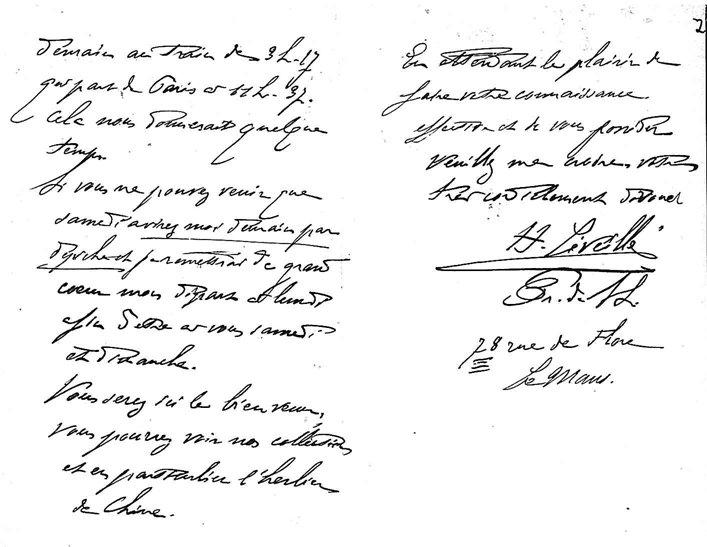 2
demain au train de 3h.17
qui part de Paris à 11h.37.
Cela nous donnerait quelque
temps.
Si vous ne pouvez venir que
samedi avisez moi demain par
dépêche et je remettrai de grand
coeur mon départ à lundi
afin d'être à vous samedi
et dimanche.
Vous serez ici le bienvenu,
vous pourrez voir nos collections
et en particulier l'herbier
de Chine.
En attendant le plaisir de
faire votre connaissance
effective et de vous posséder
veuillez me croire votre
très cordialement dévoué
H. Léveillé
78 rue de Flore
Le Mans.